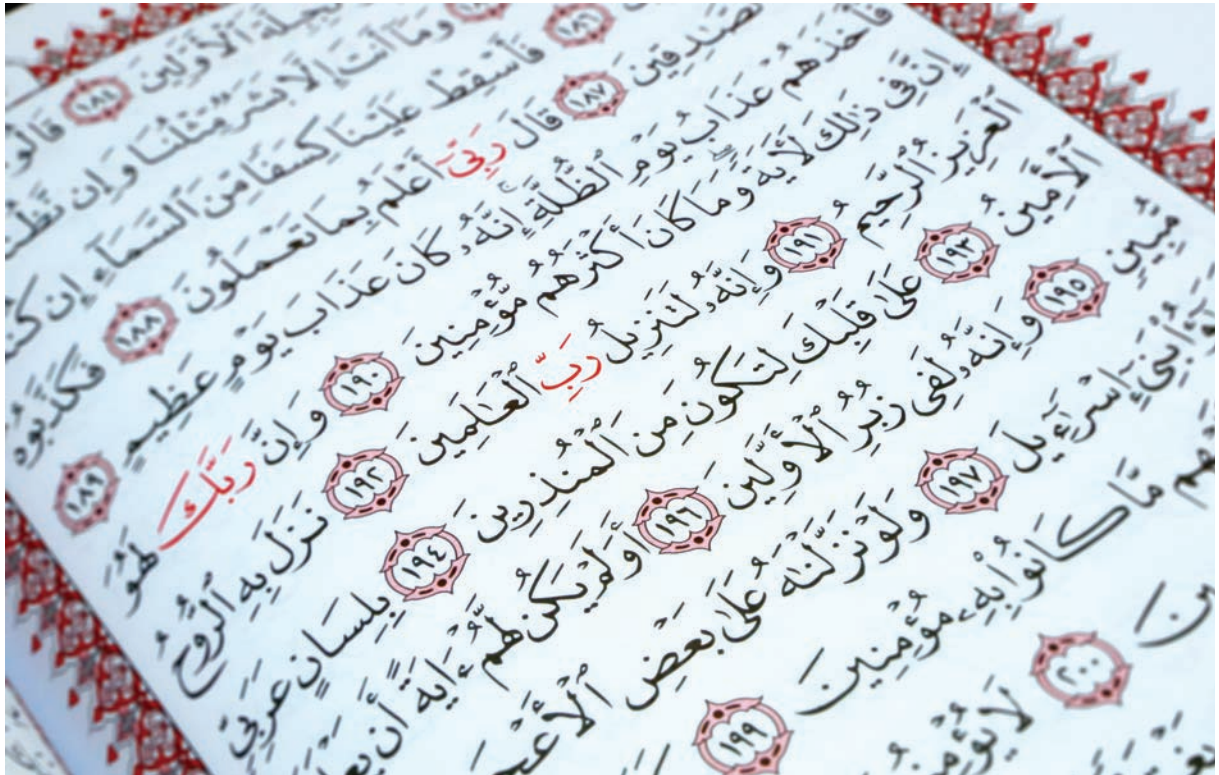 ٱلْأَوَّلِينَ ١٨٤
وَمَآ أَنتَ إِلَّا بَشَرٌ مِّثْلُنَا وَإِن
١٨٦ فَأَسْقِطْ عَلَيْنَا كِسَفًا مِّنَ ٱلسَّمَآءِ إِن
١٨٧ قَالَ رَبِّىٓ أَعْلَمُ بِمَا تَعْمَلُونَ ١٨٨ فَكَذَّبُوهُ
فَأَخَذَهُمْ عَذَابُ يَوْمِ ٱلظُّلَّةِ إِنَّهُۥ كَانَ عَذَابَ يَوْمٍ عَظِيمٍ ١٨٩
إِنَّ فِى ذَٰلِكَ لَأٓيَةً وَمَا كَانَ أَكْثَرُهُم مُّؤْمِنِينَ ١٩٠ وَإِنَّ رَبَّكَ لَهُوَ
ٱلْعَزِيزُ ٱلرَّحِيمُ ١٩١ وَإِنَّهُۥ لَتَنزِيلُ رَبِّ ٱلْعَٰلَمِينَ ١٩٢ نَزَلَ بِهِ ٱلرُّوحُ
ٱلْأَمِينُ ١٩٣ عَلَىٰ قَلْبِكَ لِتَكُونَ مِنَ ٱلْمُنذِرِينَ ١٩٤ بِلِسَانٍ عَرَبِىٍّ
مُّبِينٍ ١٩٥ وَإِنَّهُۥ لَفِى زُبُرِ ٱلْأَوَّلِينَ ١٩٦ أَوَلَمْ يَكُن لَّهُمْ ءَايَةً أَن
بَنِىٓ إِسْرَٰٓءِيلَ ١٩٧ وَلَوْ نَزَّلْنَٰهُ عَلَىٰ بَعْضِ
مَّا كَانُوا۟ بِهِۦ مُؤْمِنِينَ ١٩٩
٢٠٠ لَا